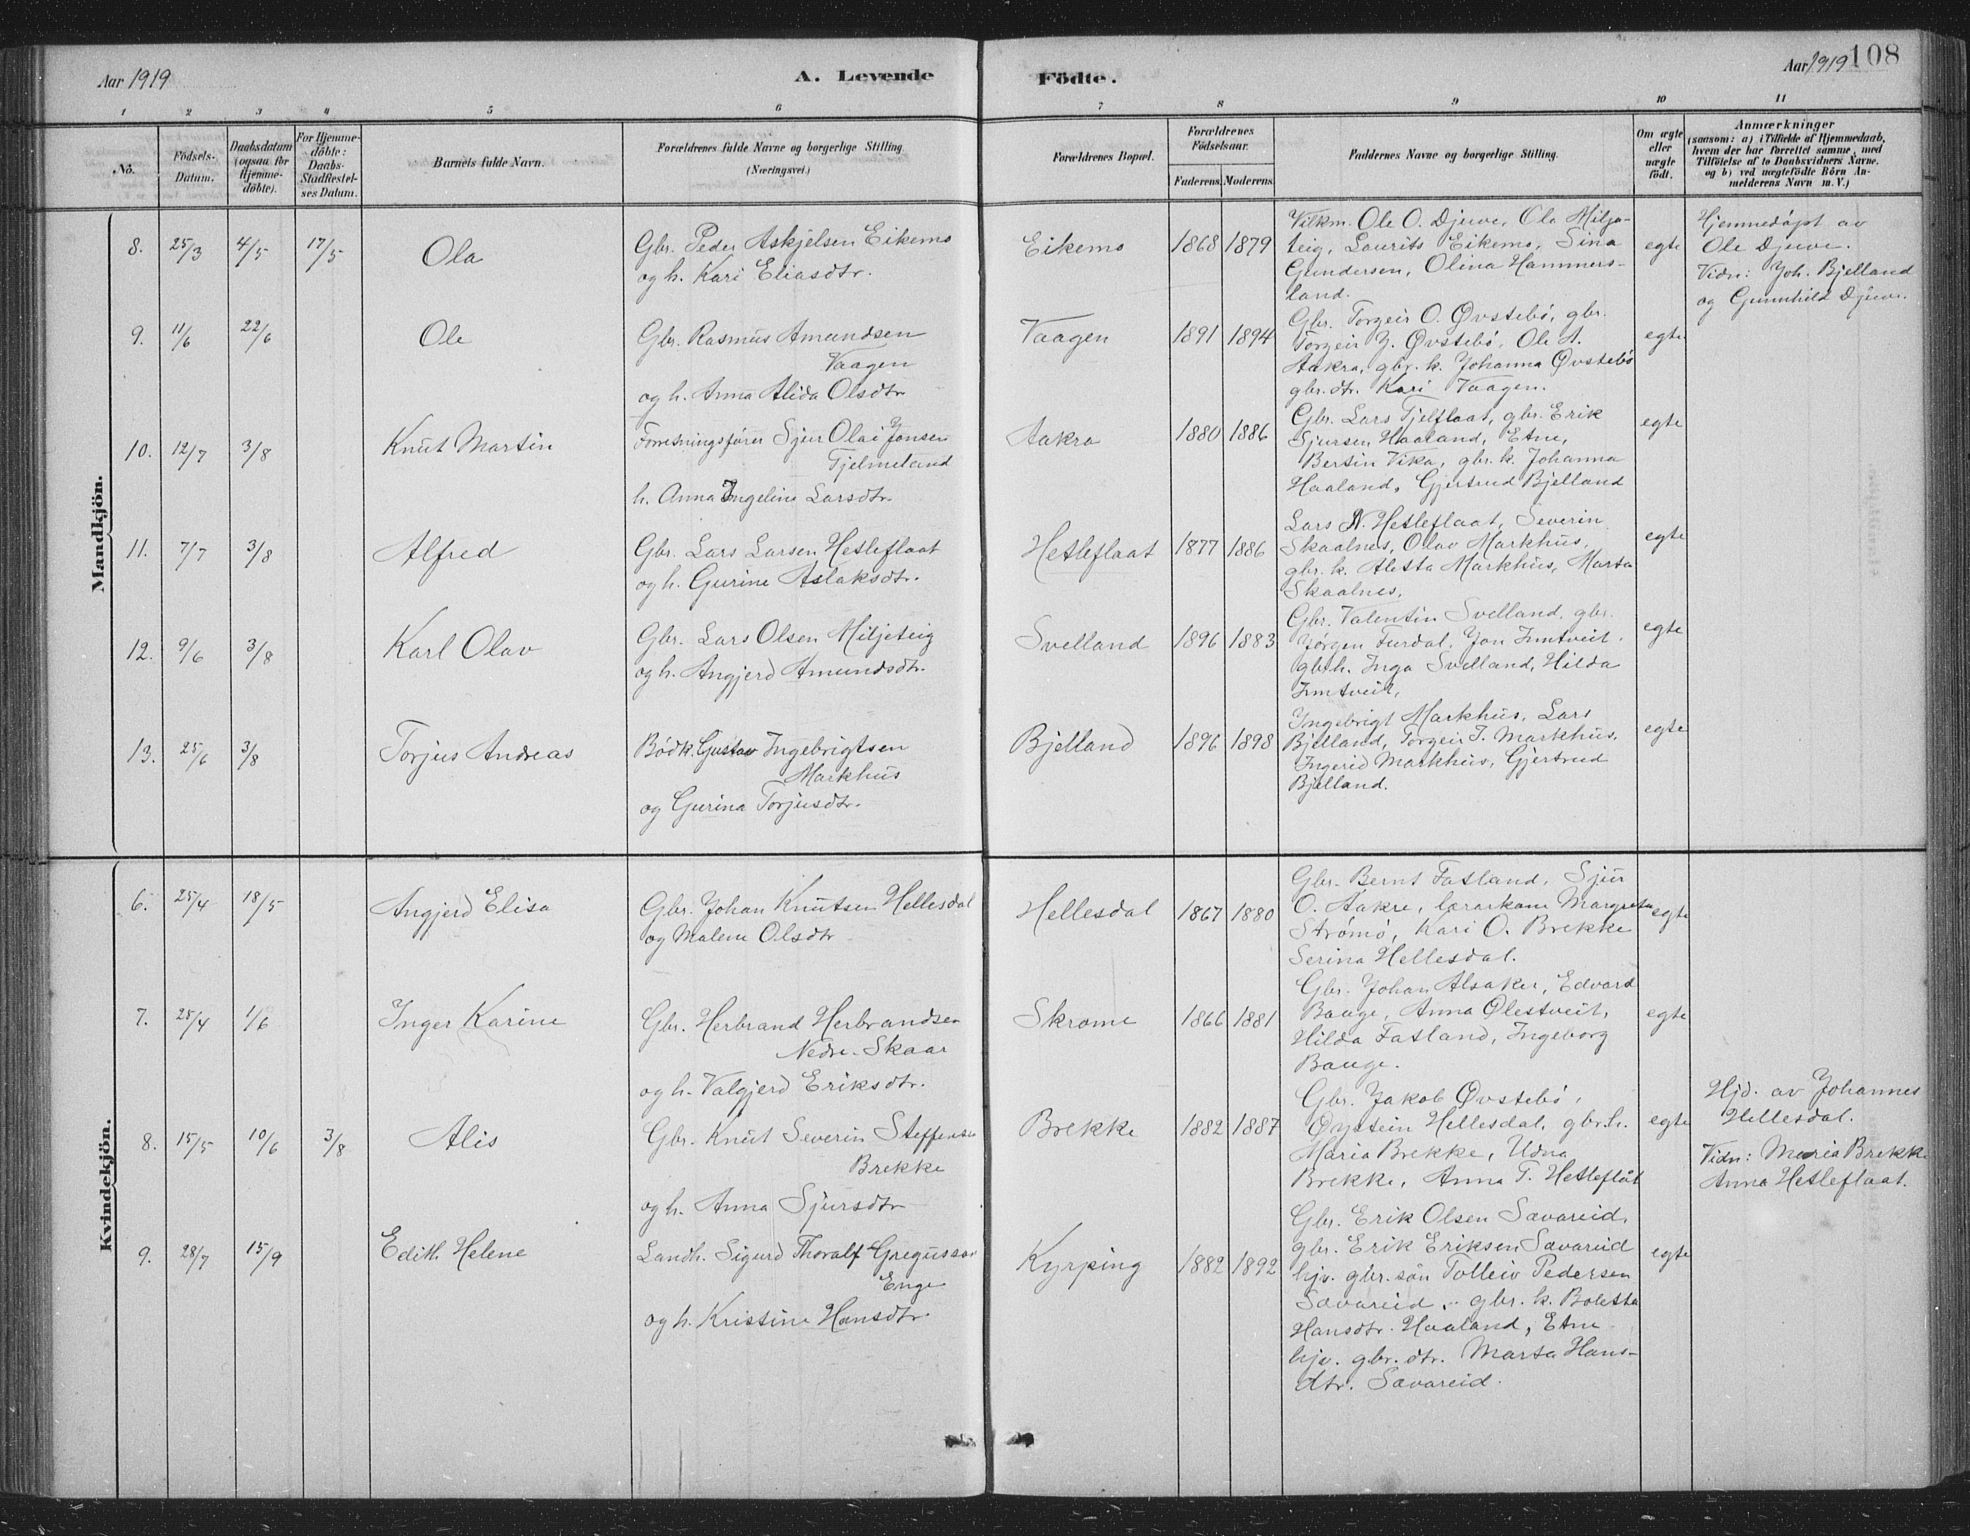 Aar 1919
A. Levende
Födte.
Aar 1919
108
1 2 3 4 5 6 7 8 9 10 11
No.
Födsels-
Datum.
Daabsdatum
(ogsaa for
Hjemme-
döbte).
For Hjemme-
döbte:
Daabs-
Stadfæstel-
ses Datum.
Barnets fulde Navn.
Forældrenes fulde Navne og borgerlige Stilling
(Næringsvei.)
Forældrenes Bopæl.
Forældrenes
Födselsaar.
Faderens. Moderens.
Faddernes Navne og borgerlige Stilling.
Om ægte
eller
uægte
födt.
Anmærkninger
(saasom: a) i Tilfælde af Hjemmedaab,
hvem der har forrettet samme, med
Tilföielse af to Daabsvidners Navne.
og b) ved uægtefödte Börn An-
melderens Navn m. V.)
Mandkjön.
8. 25/3 4/5 17/5 Ola
Gbr. Peder Askjelsen Eikemo
og h. Kari Eliasdtr.
Eikemo 1868 1879
Vilkm. Ole O. Djuve, Ola Milja-
teig, Laurits Eikemo, Sina
Gundersen, Olina Hammers-
land.
egte
Hjemmedöpt av
Ole Djuve.
Vidn: Joh. Bjelland
og Gunnhild Djuve.
9. 11/6 22/6 Ole
Gbr. Rasmus Amundsen
Vaagen
og h. Anna Alida Olsdtr
Vaagen 1891 1894
Gbr. Torgeir O. Øvstebö, gbr.
Torgeir J. Øvstebö, Ole A.
Aakra, gbr. k. Johanna Øvstebö
gbr. dtr. Kari Vaagen.
egte
10. 12/7 3/8 Knut Martin
Forretningsfører Sjur Olai Jonsen
Tjelmeland
h. Anna Ingeline Larsdtr.
Aakra 1880 1886
Gbr. Lars Tjelflaat, gbr. Erik
Sjursen Haaland, Etne,
Bertin Vika, gbr. k. Johanna
Haaland, Gjertrud Bjelland
egte
11. 7/7 3/8 Alfred
Gbr. Lars Larsen Hetleflaat
og h. Gurine Aslaksdtr.
Hetleflaat 1877 1886
Lars N. Hetleflaat, Severin
Skaalnes, Olav Markhus,
gbr. k. Aletta Markhus, Marta
Skaalnes.
egte
12. 9/6 3/8 Karl Olav
Gbr. Lars Olsen Miljeteig
og h. Angjerd Amundsdtr.
Svelland 1896 1883
Gbr. Valentin Svelland, gbr.
Jørgen Furdal, Jon Tuntveit,
gbr. h. Inga Svelland, Hilda
Tuntveit.
egte
13. 25/6 3/8 Torjus Andreas
Bødk. Gustav Ingebrigtsen
Markhus
og Gurina Torjusdtr.
Bjelland 1896 1898
Ingebrigt Markhus, Lars
Bjelland, Torgeir T. Markhus,
Ingerid Markhus, Gjertrud
Bjelland.
egte
Kvindekjön.
6. 25/4 18/5 Angjerd Elisa
Gbr. Johan Knutsen Hellesdal
og Malene Olsdtr
Hellesdal 1867 1880
Gbr. Bernt Fatland, Sjur
O. Aakre, lærarkone Margreta
Strømö, Kari O. Brekke
Serina Hellesdal.
egte
7. 25/4 1/6 Inger Karine
Gbr. Herbrand Herbrandsen
Nedre-Skaar
og h. Valgjerd Eriksdtr.
Skrome 1866 1881
Gbr. Johan Alsaker, Edvard
Bauge, Anna Ølestveit,
Hilda Fatland, Ingeborg
Bauge.
egte
8. 15/5 10/6 3/8 Alis
Gbr. Knut Severin Steffensen
Brekke
og h. Anna Sjursdtr
Brekke 1882 1887
Gbr. Jakob Øvstebö,
Øystein Hellesdal, gbr. h.
Maria Brekke, Udna
Brekke, Anna T. Hetleflöt
egte
Hjd. av Johannes
Hellesdal.
Vidn: Maria Brekke
Anna Hetleflaat.
9. 28/7 15/9 Edith Helene
Landh. Sigurd Thoralf Gregussen
Enge
og h. Kristine Hansdtr.
Kyrping 1882 1892
Gbr. Erik Olsen Sævareid,
gbr. Erik Eriksen Sævareid
hjv. gbr. sön Tolleiv Pedersen
Sævareid, gbr. k. Boletta
Hansdtr. Haaland, Etne
hjv. gbr. dtr. Marta Hans-
dtr. Sævareid.
egte